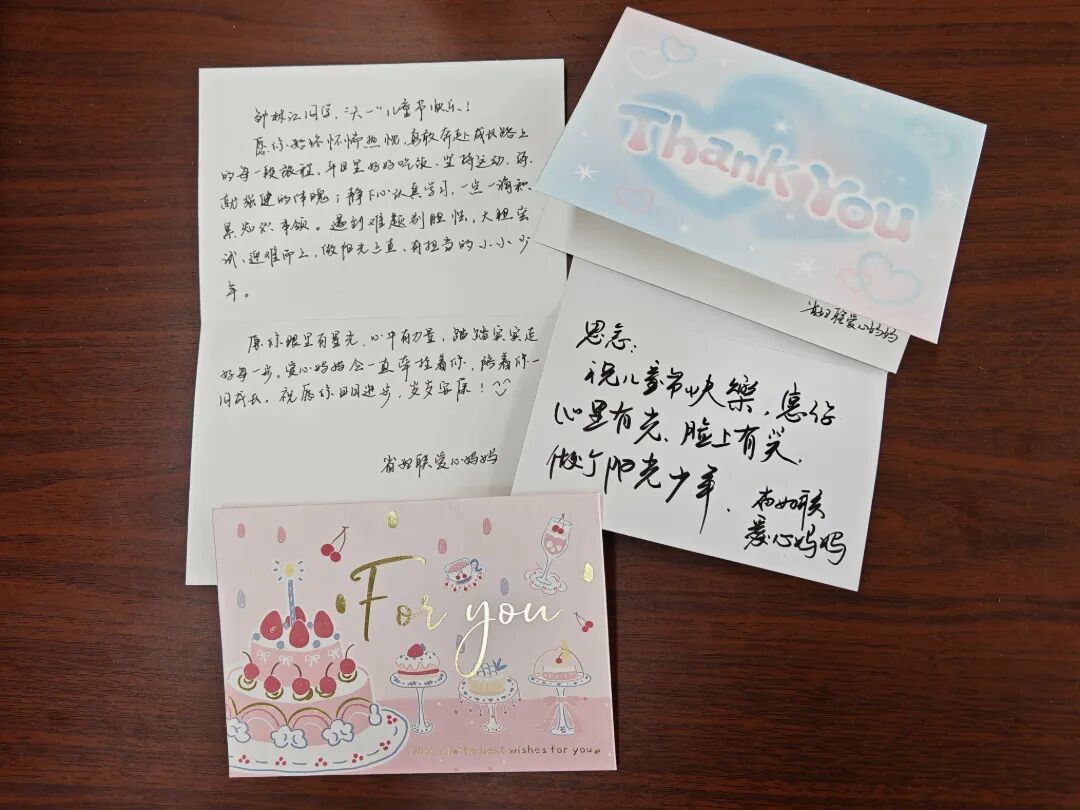 钟林江同学，"六一"儿童节快乐！
愿你始终怀揣热忱，勇敢奔赴成长路上
的每一段旅程，平日里好好吃饭、坚持运动，练
就强健的体魄；静下心认真学习，一点一滴积
累知识本领。遇到难题别胆怯，大胆尝
试、迎难而上，做阳光正直、有担当的小小少
年。
愿你眼里有星光，心中有力量，踏踏实实走
好每一步。爱心妈妈会一直牵挂着你，陪着你一
同成长。祝愿你日日进步，岁岁安康！
省妇联爱心妈妈
Thank You
省妇联爱心妈妈
思念：
祝儿童节快樂，愿你
心里有光、脸上有笑，
做个阳光少年。
省妇联
爱心妈妈
For you
best wishes for you